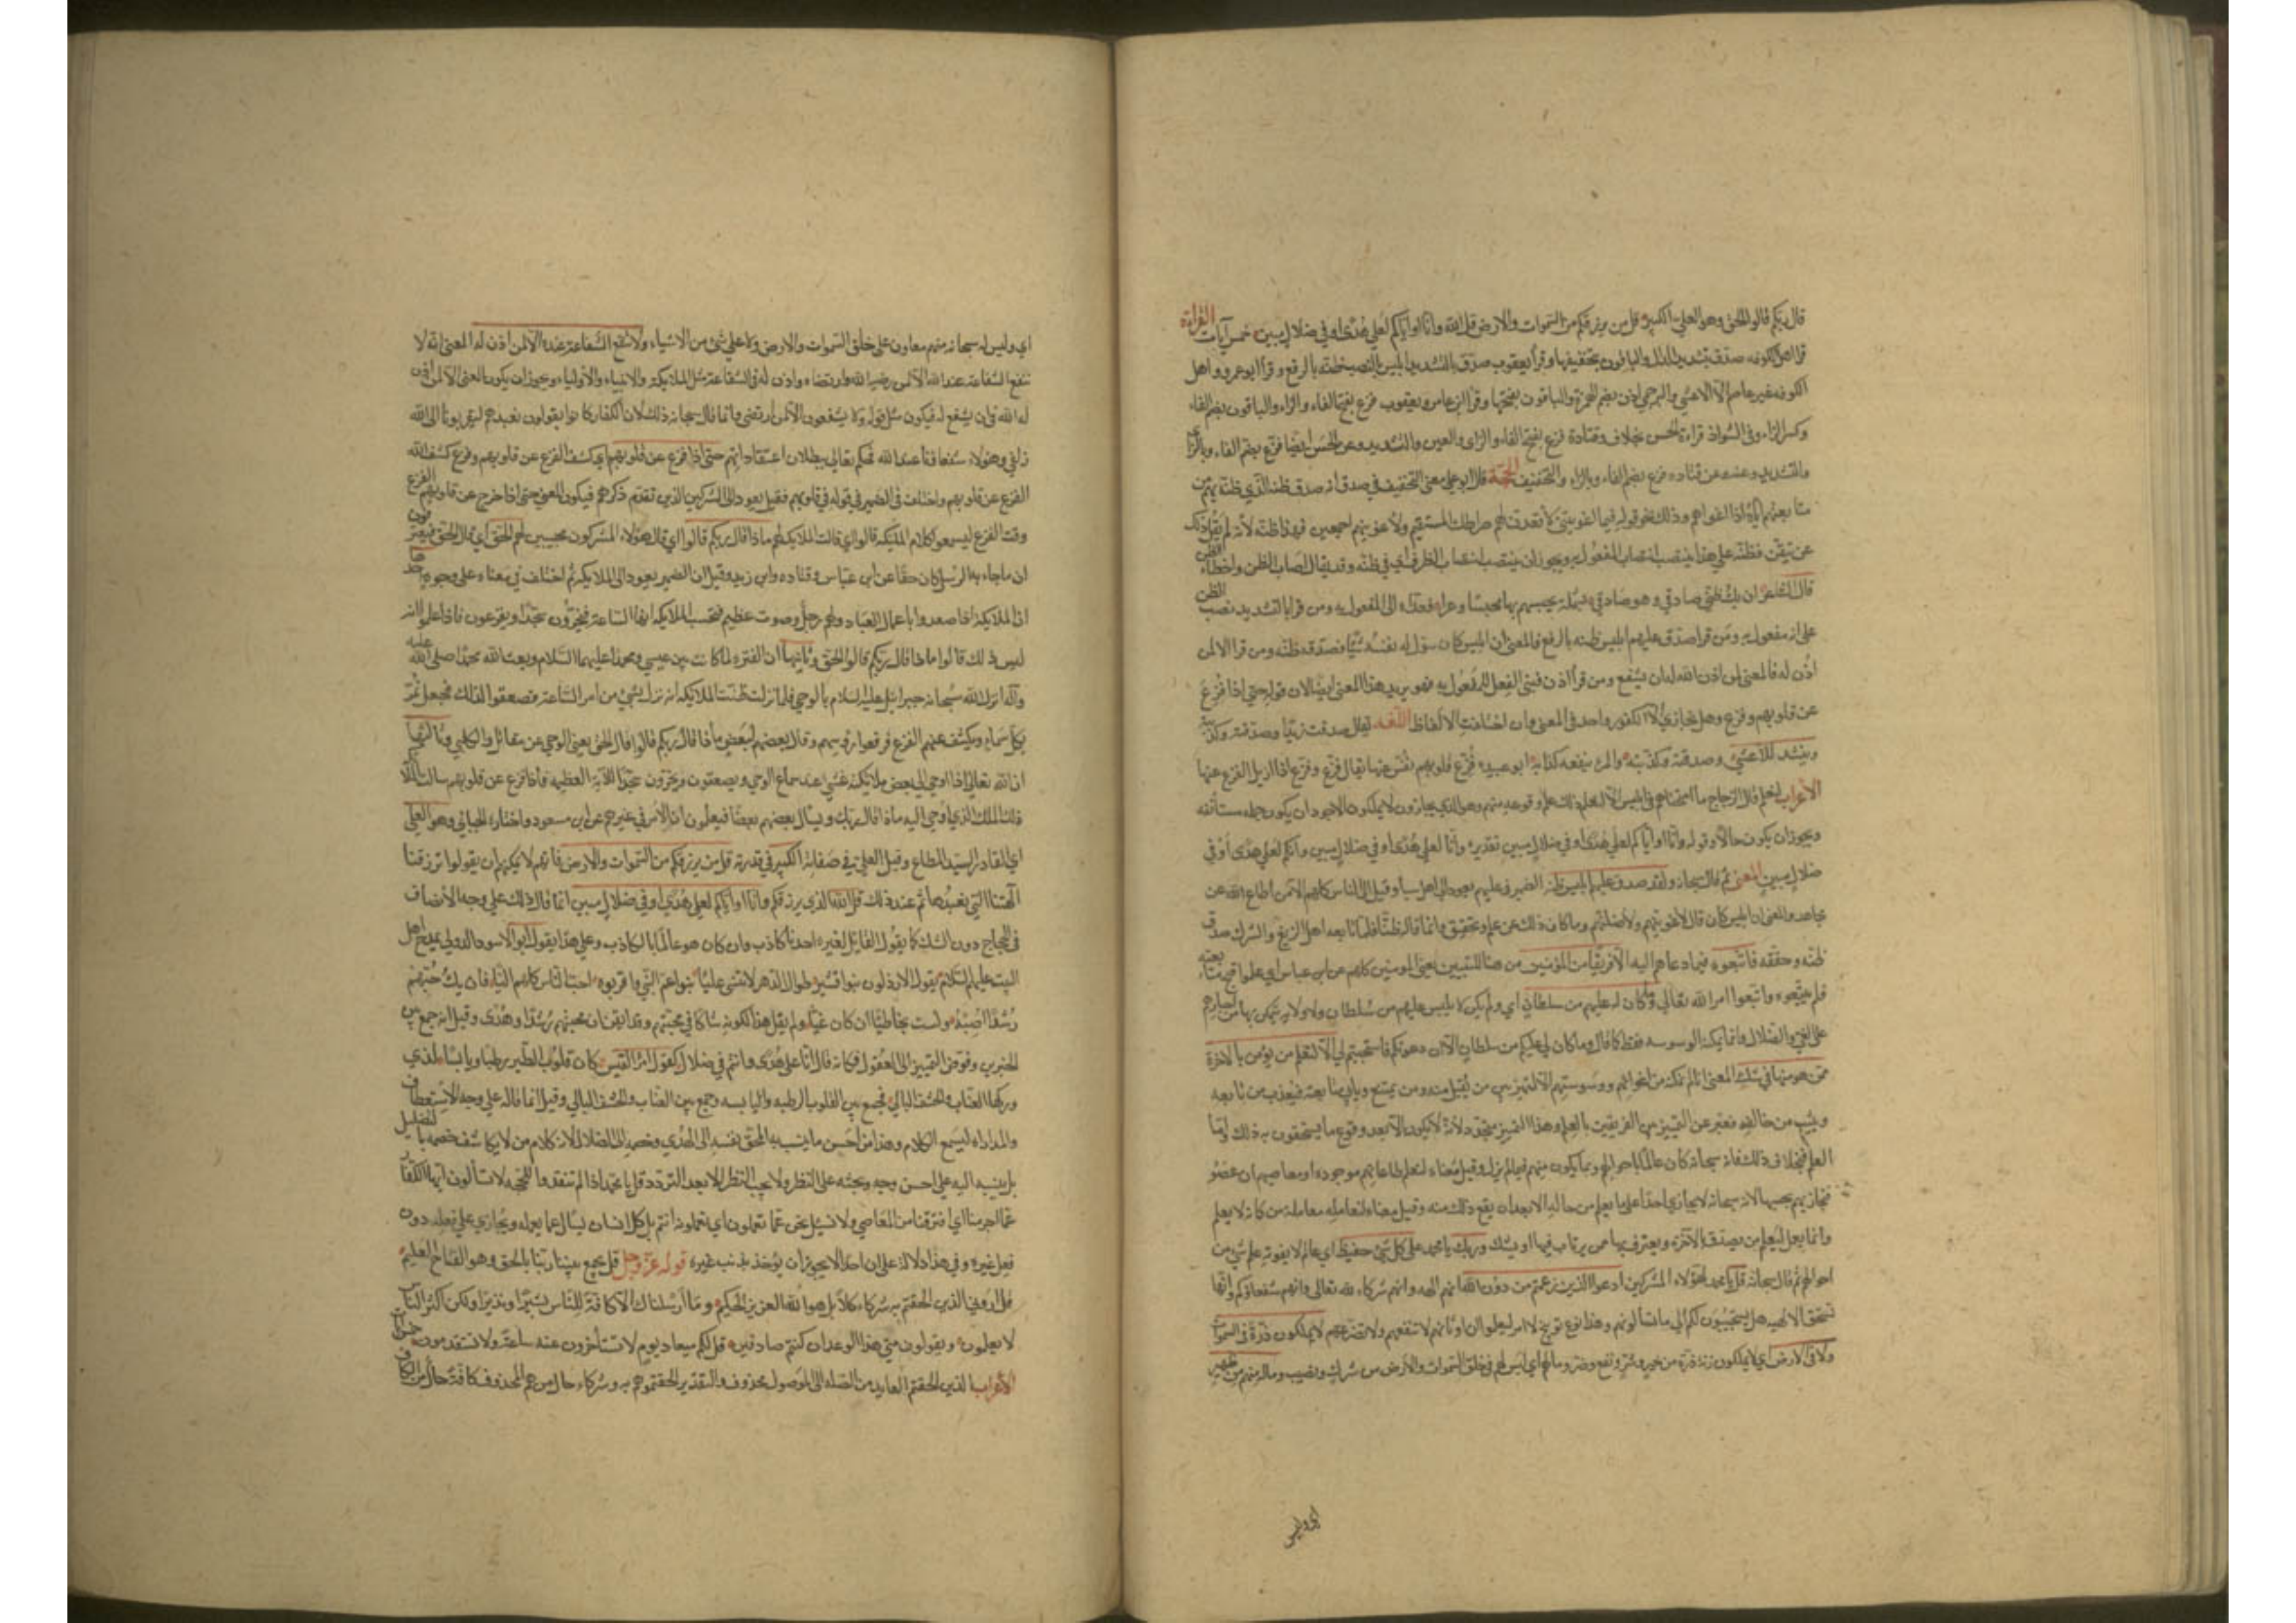 قال ربكم قالوا الحق وهو العلي الكبير قل من يرزقكم من السموات والارض قل الله وانا او اياكم لعلى هدى او في ضلال مبين خمس آيات القراءة
قرا اهل الكوفه صدق بتشديد الدال والباقون بتخفيفها وقرأ يعقوب صدق بالتشديد ابليس بالنصب ظنه بالرفع وقرأ ابو عمرو واهل
الكوفه غير عاصم الا الاعشى والبرجمي اذن بضم الهمزة والباقون بفتحها وقرأ ابن عامر ويعقوب فزع بفتح الفاء والزاء والباقون بضم الفاء
وكسر الزاء وفي الشواذ قراءة الحسن بخلاف وقتادة فزع بفتح الفاء والراى والعين والتشديد وعن الحسن ايضا فزع بضم الفاء وبالراى
والتشديد وعنه عن قتاده فزع بضم الفاء وبالراء والتخفيف الحجة قال ابو علي معنى التخفيف في صدق انه صدق ظنه الذي ظنه بهم من
متابعتهم اياه اذا اغواهم وذلك نحو قوله فبما اغويتني لأقعدن لهم صراطك المستقيم ولأغوينهم اجمعين فهذا ظنه لأنه لم يقل ذلك
عن تيقن فظنه على هذا ينتصب انتصاب المفعول به ويجوز ان ينتصب انتصاب الظرف اي في ظنه وقد يقال اصاب الظن واخطأ الظن
قال الشاعر ان يك ظني صادقي وهو صادقي بشملة يحبسهم بها محبسا وعرا فعداه الى المفعول به ومن قرا بالتشديد نصب الظن
على انه مفعول به ومن قرا صدق عليهم ابليس ظنه بالرفع فالمعنى ان ابليس كان سول له نفسه شيئا فصدقه ظنه ومن قرا الا لمن
اذن له فالمعنى لمن اذن الله له ان يشفع ومن قرأ اذن فبنى الفعل للمفعول به فهو يريد هذا المعنى ايضا لان قوله حتى اذا فزع
عن قلوبهم وفزع وهل يجازي الا الكفور واحد في المعنى وان اختلفت الالفاظ اللغه يقال صدقت زيدا وصدقته وكذبته
وينشد للاعشى وصدقته وكذبته والمرء ينفعه كذابه ابو عبيده فزع قلوبهم نفس عنها يقال فزع وفزع اذا ازيل الفزع عنها
الأعراب لنعلم قال الزجاج ما امتحناهم في ابليس الا لنعلم ذلك علم وقوعه منهم وهو الذي يجازون لا يملكون الاجود ان يكون جمله مستأنفه
ويجوز ان يكون حالا وقوله وانا او اياكم لعلى هدى او في ضلال مبين تقديره وانا لعلى هدى او في ضلال مبين وانكم لعلى هدى او في
ضلال مبين المعنى ثم قال سبحانه ولقد صدق عليهم ابليس ظنه الضمير في عليهم يعود الى اهل سبا وقيل الى الناس كلهم الا من اطاع الله عن
مجاهد والمعنى ان ابليس كان قال لأغوينهم ولأضلنهم وما كان ذلك عن علم وتحقيق وانما قاله ظنا فلما تابعه اهل الزيغ والشرك صدق
ظنه وحققه فاتبعوه فيما دعاهم اليه الا فريقا من المؤمنين من هنا للتبيين يعنى المومنين كلهم عن ابن عباس اي علموا قبح متابعته
فلم يتبعوه واتبعوا امر الله تعالى وما كان له عليهم من سلطان اي ولم يكن لابليس عليهم من سلطان ولا ولاية يتمكن بها من اجبارهم
على الغي والضلال وانما يمكنه الوسوسه فقط كما قال وما كان لي عليكم من سلطان الا ان دعوتكم فاستجبتم لي الا لنعلم من يؤمن بالاخرة
ممن هو منها في شك المعنى انا لم نمكنه من اغوائهم ووسوستهم الا لنميز بين من يقبل منه ومن يمتنع ويأبى متابعته فنعذب من تابعه
ونثيب من خالفه فعبر عن التمييز بين الفريقين بالعلم وهذا التمييز متجدد لأنه لا يكون الا بعد وقوع ما يستحقون به ذلك واما
العلم فبخلاف ذلك فانه سبحانه كان عالما باحوالهم وبما يكون منهم فيما لم يزل وقيل معناه لنعلم طاعاتهم موجودة او معاصيهم ان عصوا
فنجازيهم بحسبها لانه سبحانه لا يجازي احدا على ما يعلم من حاله الا بعد ان يقع ذلك منه وقيل معناه لنعامله معاملة من كانه لا يعلم
وانما يعمل ليعلم من يصدق بالآخرة ويعترف بها ممن يرتاب فيها او يشك وربك يا محمد على كل شئ حفيظ اي عالم لا يفوته علم شئ من
احوالهم ثم قال سبحانه قل يا محمد لهؤلاء المشركين ادعوا الذين زعمتم من دون الله انهم الهه وانهم شركاء لله تعالى وانهم شفعاؤكم وانها
تستحق الالهيه هل يستجيبون لكم الى ما تسألونهم وهذا نوع توبيخ لا امر ليعلموا ان اوثانهم لا تنفعهم ولا تضرهم لا يملكون ذرة في السموات
ولا في الارض اي لا يملكون زنة ذرة من خير وشر ونفع وضر وما لهم اي ليس لهم في خلق السموات والأرض من شرك ونصيب وما له منهم من ظهير
اي وليس
اي وليس له سبحانه منهم معاون على خلق السموات والارض ولا على شئ من الاشياء ولا تنفع الشفاعة عنده الا لمن اذن له المعنى انه لا
تنفع الشفاعة عند الله الا لمن رضيه الله وارتضاه واذن له في الشفاعة مثل الملائكة والانبياء والأولياء ويجوز ان يكون المعنى الا لمن اذن
له الله في ان يشفع له فيكون مثل قوله ولا يشفعون الا لمن ارتضى وانما قال سبحانه ذلك لان الكفار كانوا يقولون نعبدهم ليقربونا الى الله
زلفى وهؤلاء شفعاؤنا عند الله فحكم تعالى ببطلان اعتقاداتهم حتى اذا فزع عن قلوبهم اي كشف الفزع عن قلوبهم وفزع كشف الله
الفزع عن قلوبهم واختلف في الضمير في قوله في قلوبهم فقيل يعود الى المشركين الذين تقدم ذكرهم فيكون المعنى حتى اذا خرج عن قلوبهم الفزع
وقت الفزع ليسمعوا كلام الملئكة قالوا اي قالت الملايكه لهم ماذا قال ربكم قالوا اي قال هؤلاء المشركون مجيبين لهم الحق اي قال الحق فيعترفون
ان ما جاء به الرسل كان حقا عن ابن عباس وقتاده وابن زيد وقيل ان الضمير يعود الى الملايكة ثم اختلف في معناه على وجوه احدها
ان الملايكة اذا صعدوا باعمال العباد ولهم زجل وصوت عظيم فتحسب الملايكة انها الساعة فيخرون سجدا ويفزعون فاذا علموا انه
ليس ذلك قالوا ماذا قال ربكم قالوا الحق وثانيها ان الفتره لما كانت بين عيسى ومحمد عليهما السلام وبعث الله محمدا صلى الله عليه
وآله انزل الله سبحانه جبرائيل عليه السلام بالوحي فلما نزلت ظنت الملايكة انه نزل بشئ من امر الساعة فصعقوا لذلك فجعل يمر
بكل سماء ويكشف عنهم الفزع فرفعوا رؤسهم وقال بعضهم لبعض ماذا قال ربكم قالوا قال الحق يعنى الوحي عن مقاتل والكلبي وثالثها
ان الله تعالى اذا اوحى الى بعض ملايكته غشي عند سماع الوحي ويصعقون ويخرون سجدا للآية العظيمه فاذا فزع عن قلوبهم سالت الملائكة
ذلك الملك الذي اوحى اليه ماذا قال ربك ويسأل بعضهم بعضا فيعلمون ان الأمر في غيرهم عن ابن مسعود واختاره الجبائي وهو العلي
اي القادر السيد المطاع وقيل العلي في صفاته الكبير في قدرته قل من يرزقكم من السموات والارض فانهم لا يمكنهم ان يقولوا ترزقنا
آلهتنا التي نعبدها ثم عند ذلك قل الله الذي يرزقكم وانا او اياكم لعلى هدى او في ضلال مبين انما قال ذلك على وجه الأنصاف
في الحجاج دون الشك كما يقول القائل لغيره احدنا كاذب وان كان هو عالما بالكاذب وعلى هذا يقول ابو الاسود الدولي يمدح اهل
البيت عليهم السلام يقول الارذلون بنو قشير طوال الدهر لا تنسى عليا بنو عم النبي واقربوه احب الناس كلهم اليا فان يك حبهم
رشدا اصبه ولست بمخطئ ان كان غيا ولم يقل هذا لكونه شاكا في محبتهم وقد ايقن ان محبتهم رشد وهدى وقيل انه جمع بين
الخبرين وفوض التمييز الى العقول فكانه قال انا على هدى وانتم في ضلال كقول امرء القيس كان قلوب الطير رطبا ويابسا لدى
وكرها العناب والحشف البالي فجمع بين القلوب الرطبه واليابسه وجمع بين العناب والحشف البالي وقيل انما قاله على وجه الأستعطاف
والمداراه ليسمع الكلام وهذا من احسن ما ينسب به المحق نفسه الى الهدى وخصمه الى الضلال لانه كلام من لا يكاشف خصمه بالتضليل
بل ينسبه اليه على احسن وجه ويحثه على النظر ولا يجب النظر الا بعد التردد قل يا محمد اذا لم تنقد والحجه لا تسألون ايها الكفار
عما اجرمنا اي اقترفنا من المعاصي ولا نسئل نحن عما تعملون اي تعملونه انتم بل كل انسان يسأل عما يعمله ويجازي على فعله دون
فعل غيره وفي هذا دلالة على ان احدا لا يجوز ان يؤخذ بذنب غيره قوله عز وجل قل يجمع بيننا ربنا بالحق وهو الفتاح العليم
قل اروني الذين الحقتم به شركاء كلا بل هو الله العزيز الحكيم وما ارسلناك الا كافة للناس بشيرا ونذيرا ولكن اكثر الناس
لا يعلمون ويقولون متى هذا الوعد ان كنتم صادقين قل لكم ميعاد يوم لا تستأخرون عنه ساعة ولا تستقدمون
الأعراب الذين الحقتم العايد من الصله الى الموصول محذوف والتقدير الحقتموهم به وشركاء حال من هم المحذوف كافة حال من الكاف